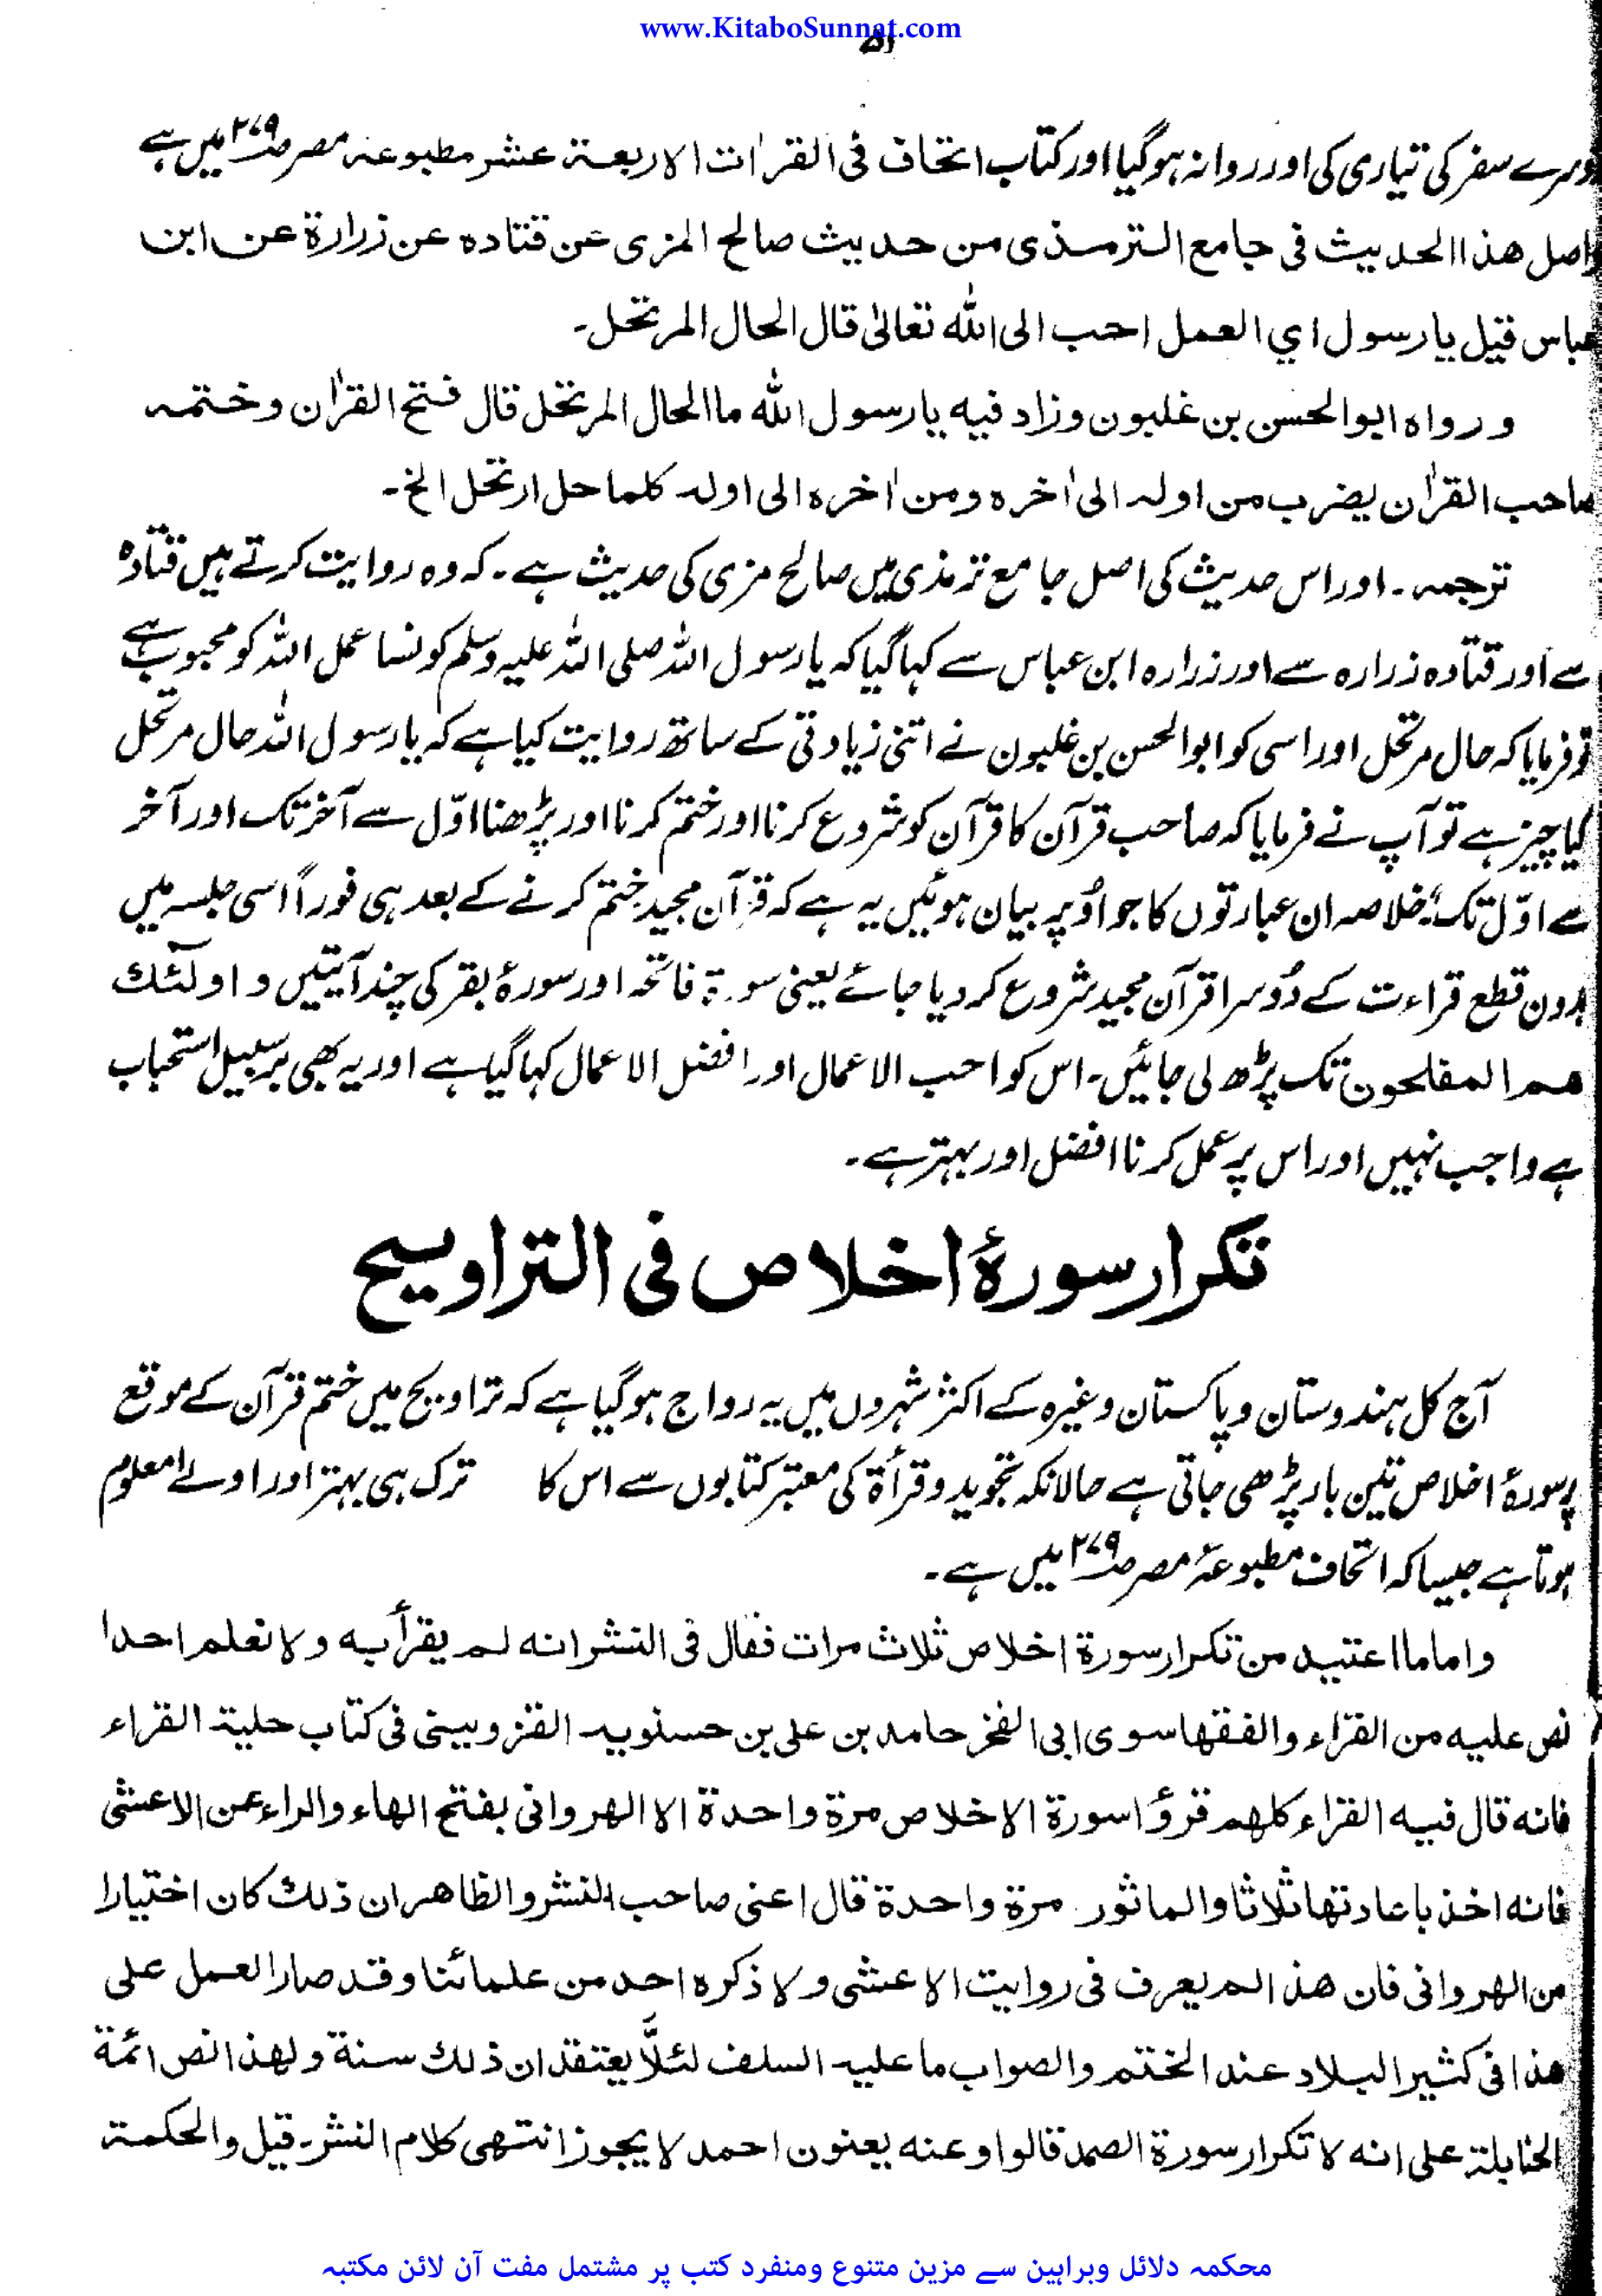 www.KitaboSunnat.com
۵۱
دوسرے سفر کی تیاری کی اور روانہ ہوگیا اور کتاب اتحاف فی القراٰت الاربعۃ عشر مطبوعہ مصر صہ۲۷۹ میں ہے
واصل ھذا الحدیث فی جامع الترمذی من حدیث صالح المزی عن قتادہ عن زرارۃ عن ابن
عباس قیل یا رسول اي العمل احب الی اللہ تعالیٰ قال الحال المرتحل۔
ورواہ ابوالحسن بن غلبون وزاد فیہ یا رسول اللہ ما الحال المرتحل قال فتح القراٰن وختمہ
صاحب القراٰن یضرب من اولہ الی اٰخرہ ومن اٰخرہ الی اولہ کلما حل ارتحل الخ۔
ترجمہ۔ اور اس حدیث کی اصل جامع ترمذی میں صالح مزی کی حدیث ہے۔ کہ وہ روایت کرتے ہیں قتادہ
سے اور قتادہ زرارہ سے اور زرارہ ابن عباس سے کہا گیا کہ یا رسول اللہ صلی اللہ علیہ وسلم کونسا عمل اللہ کو محبوب ہے
تو فرمایا کہ حال مرتحل اور اسی کو ابوالحسن بن غلبون نے اتنی زیادتی کے ساتھ روایت کیا ہے کہ یا رسول اللہ حال مرتحل
کیا چیز ہے تو آپ نے فرمایا کہ صاحب قرآن کا قرآن کو شروع کرنا اور ختم کرنا اور پڑھنا اوّل سے آخر تک اور آخر
سے اوّل تک۔ خلاصہ ان عبارتوں کا جو اُوپر بیان ہوئیں یہ ہے کہ قرآن مجید ختم کرنے کے بعد ہی فوراً اسی جلسہ میں
بدون قطع قراءت کے دُوسرا قرآن مجید شروع کر دیا جائے یعنی سورۃ فاتحہ اور سورۂ بقر کی چند آیتیں و اولٓئک
ھم المفلحون تک پڑھ لی جائیں۔ اس کو احب الاعمال اور افضل الاعمال کہا گیا ہے اور یہ بھی برسبیل استحباب
ہے واجب نہیں اور اس پر عمل کرنا افضل اور بہتر ہے۔
تکرار سورۂ اخلاص فی التراویح
آج کل ہندوستان و پاکستان وغیرہ کے اکثر شہروں میں یہ رواج ہوگیا ہے کہ تراویح میں ختم قرآن کے موقع
پر سورۂ اخلاص تین بار پڑھی جاتی ہے حالانکہ تجوید و قرأۃ کی معتبر کتابوں سے اس کا ترک ہی بہتر اور اولےٰ معلوم
ہوتا ہے جیسا کہ اتحاف مطبوعۂ مصر صہ۲۷۹ میں ہے۔
واما ما اعتید من تکرار سورۃ اخلاص ثلاث مرات فقال فی النشر انہ لم یقرأ بہ ولا نعلم احدا
نص علیہ من القراء والفقہا سوی ابی الفخر حامد بن علی بن حسنویہ القزوینی فی کتاب حلیۃ القراء
فانہ قال فیہ القراء کلھم قرؤا سورۃ الاخلاص مرۃ واحدۃ الا الھروانی بفتح الھاء والراء عن الاعشی
فانہ اخذ باعادتھا ثلاثا والماثور مرۃ واحدۃ قال اعنی صاحب النشر والظاھر ان ذلک کان اختیارا
من الھروانی فان ھذا لم یعرف فی روایت الاعشی ولا ذکرہ احد من علمائنا وقد صار العمل علی
ھذا فی کثیر البلاد عند الختم والصواب ما علیہ السلف لئلّا یعتقد ان ذلک سنۃ ولھذا نص ائمۃ
الحنابلۃ علی انہ لا تکرار سورۃ الصمد قالوا وعنہ یعنون احمد لا یجوز انتھی کلام النشر۔ قیل والحکمۃ
محکمہ دلائل وبراہین سے مزین متنوع ومنفرد کتب پر مشتمل مفت آن لائن مکتبہ